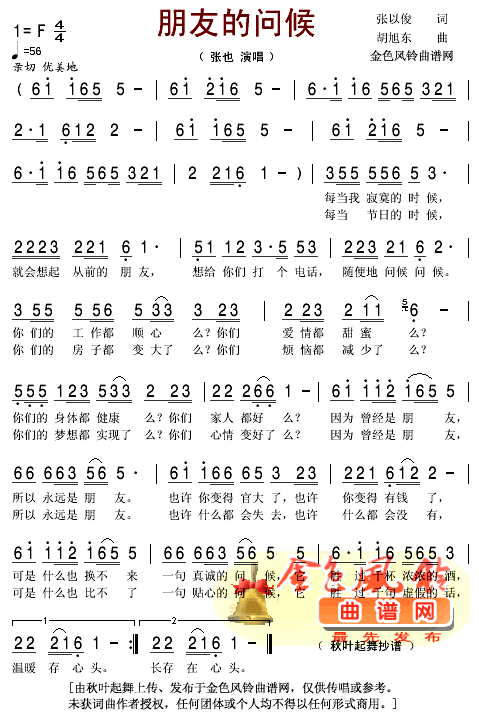 朋友的问候
1= F 4/4
♩=56
亲切 优美地
( 张也 演唱 )
张以俊 词
胡旭东 曲
金色风铃曲谱网
( 6 1 1 6 5 5 - | 6 1 2 1 6 5 - | 3 2 1 2 3 5 6 5 3 |
2 · 1 6 1 2 2 - | 6 1 1 6 5 5 - | 6 1 2 1 6 5 - |
6 · 1 1 6 5 6 5 3 2 1 | 2 2 1 6 1 - ) | 3 5 5 5 5 6 5 5 3 · |
每当我 寂寞的 时 候,
每当 节日的 时 候,
2 2 2 3 2 2 1 6 1 · | 5 1 1 2 3 · 5 5 3 | 2 2 3 2 2 1 6 2 · |
就会想起 从前的 朋 友, 想给 你们 打 个 电话, 随便地 问候 问 候。
3 5 5 5 5 6 5 5 3 3 2 3 | 2 2 2 3 2 1 1 6 · |
你 们的 工 作都 顺 心 么?你们 爱 情都 甜 蜜 么?
你 们的 房 子都 变 大了 么?你们 烦 恼都 减 少了 么?
5 5 5 1 2 3 5 3 3 2 2 3 | 2 2 2 6 6 1 - | 6 1 1 1 2 1 6 5 5 |
你们的 身体都 健康 么?你们 家人 都好 么? 因为 曾经是 朋 友,
你们的 梦想都 实现了 么?你们 心情 变好了 么? 因为 曾经是 朋 友,
6 6 6 6 3 5 6 5 · | 6 1 1 6 6 5 5 6 5 | 2 2 2 2 1 6 1 2 2 |
所以 永远是 朋 友。 也许 你变得 官大 了,也许 你变得 有钱 了,
所以 永远是 朋 友。 也许 什么都 会失 去,也许 什么都 会没 有,
6 1 1 1 2 1 6 5 5 | 6 6 6 6 3 5 6 5 5 | 6 · 1 1 6 5 6 5 3 |
可是 什么也 换不 来 一句 真诚的 问 候,它 胜 过 千杯 浓浓的 酒,
可是 什么也 比不 了 一句 贴心的 问 候,它 胜 过 千句 虚假的 话,
2 2 2 1 6 1 - | 2 2 2 1 6 1 - |
温暖 存 心 头。 长存 在 心 头。
金色风铃
曲谱网
最先发布
( 秋叶起舞抄谱 )
[由秋叶起舞上传、发布于金色风铃曲谱网,仅供传唱或参考。
未获词曲作者授权,任何团体或个人均不得以任何形式商用。]